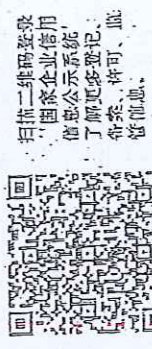 扫描二维码登录
'国家企业信用
信息公示系统'
了解更多登记、
备案、许可、监
管信息。